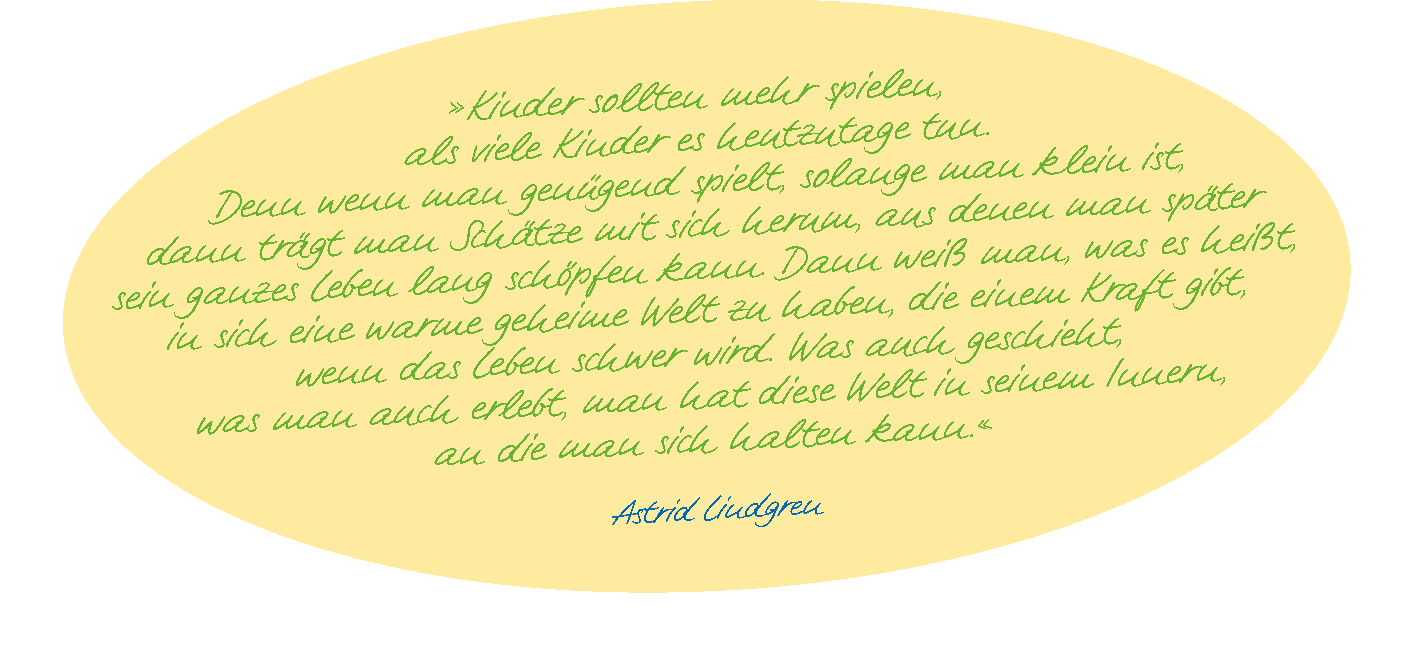 »Kinder sollten mehr spielen,
als viele Kinder es heutzutage tun.
Denn wenn man genügend spielt, solange man klein ist,
dann trägt man Schätze mit sich herum, aus denen man später
sein ganzes Leben lang schöpfen kann. Dann weiß man, was es heißt,
in sich eine warme geheime Welt zu haben, die einem Kraft gibt,
wenn das Leben schwer wird. Was auch geschieht,
was man auch erlebt, man hat diese Welt in seinem Innern,
an die man sich halten kann.«
Astrid Lindgren